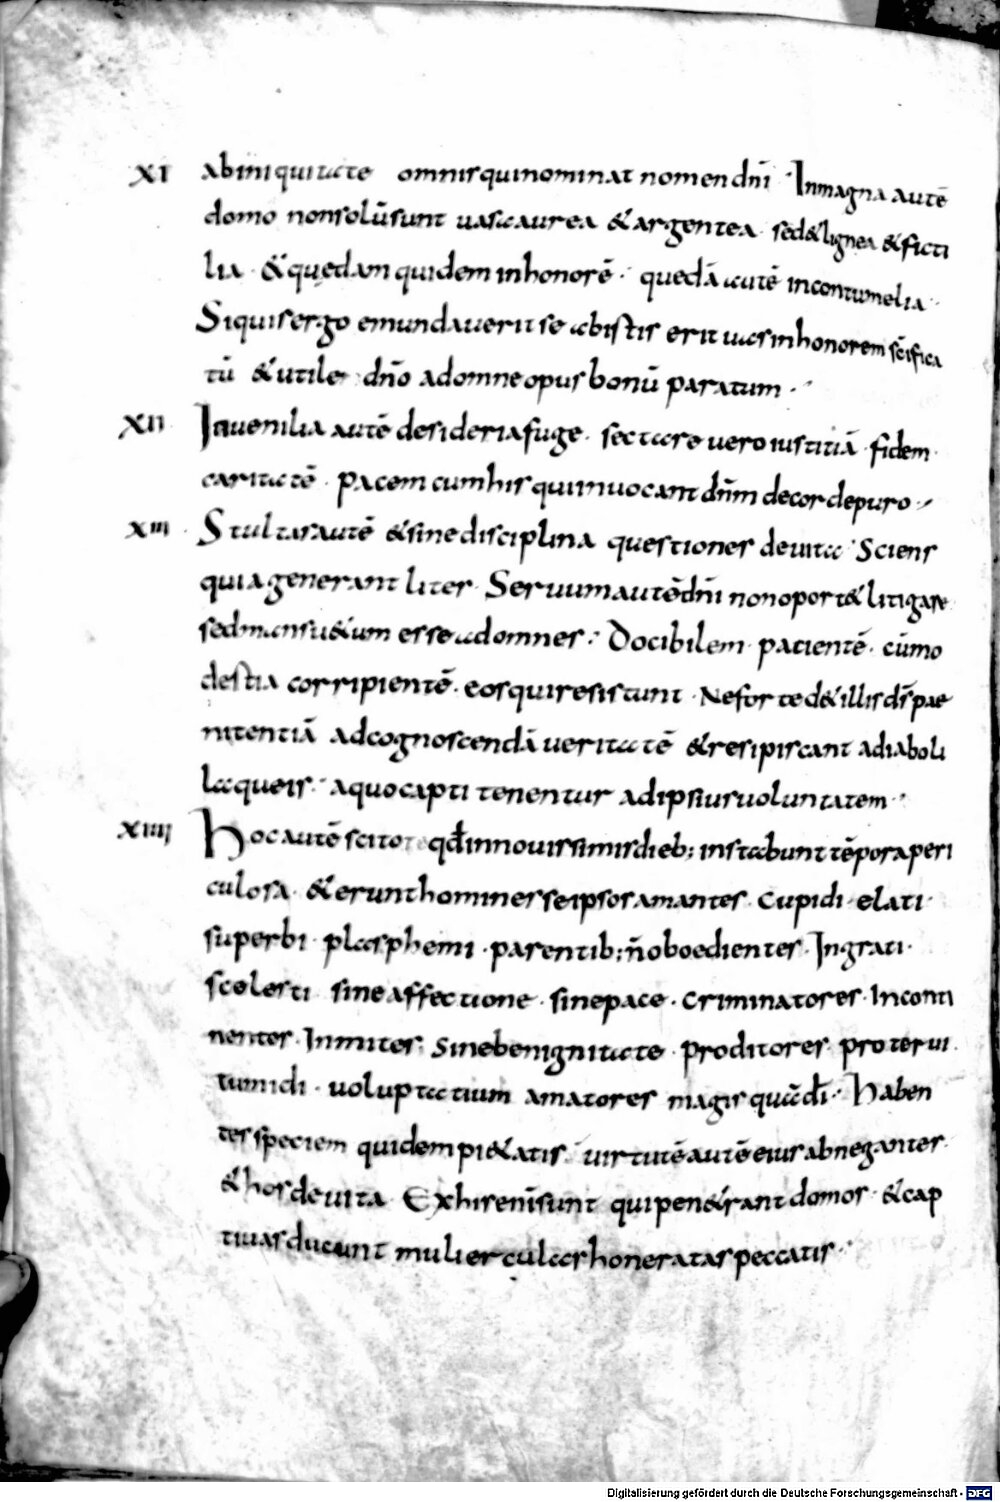 XI abiniquitate omnis qui nominat nomen dñi · In magna autē
domo non solū sunt uasa aurea & argentea · sed & lignea & ficti
lia · & quędam quidem in honorē · quedā autē in contumelia ·
Siquis ergo emundauerit se ab istis erit uas in honorem scīfica
tū & utile dño ad omne opus bonū paratum ·
XII Iuuenilia autē desideria fuge · sectare uero iustitiā · fidem ·
caritatē · pacem cum his qui inuocant dñm de corde puro ·
XIII · Stultas autē & sine disciplina questiones deuita · Sciens
quia generant lites · Seruum autē dñi non oport& litigare
sed mansu&um esse ad omnes · Docibilem · patientē · cū mo
destia corripientē · eos qui resistunt · Ne forte d& illis dš pae
nitentiā ad cognoscendā ueritatē & resipiscant a diaboli
laqueis · a quo capti tenentur ad ipsius uoluntatem ·
XIIII Hoc autē scitote qđ in nouissimis dieb; instabunt tēpora peri
culosa · & erunt homines se ipsos amantes · Cupidi · elati ·
superbi · plasphemi · parentib; ñ oboedientes · Ingrati ·
scelesti · sine affectione · sine pace · criminatores · Inconti
nentes · Inmites · sine benignitate · proditores · proterui ·
tumidi · uoluptatium amatores magis quā đi · Haben
tes speciem quidem pi&atis · uirtutē autē eius abnegantes ·
& hos deuita · Ex his enī sunt qui pen&rant domos · & cap
tiuas ducunt mulierculas honeratas peccatis ·
Digitalisierung gefördert durch die Deutsche Forschungsgemeinschaft - DFG